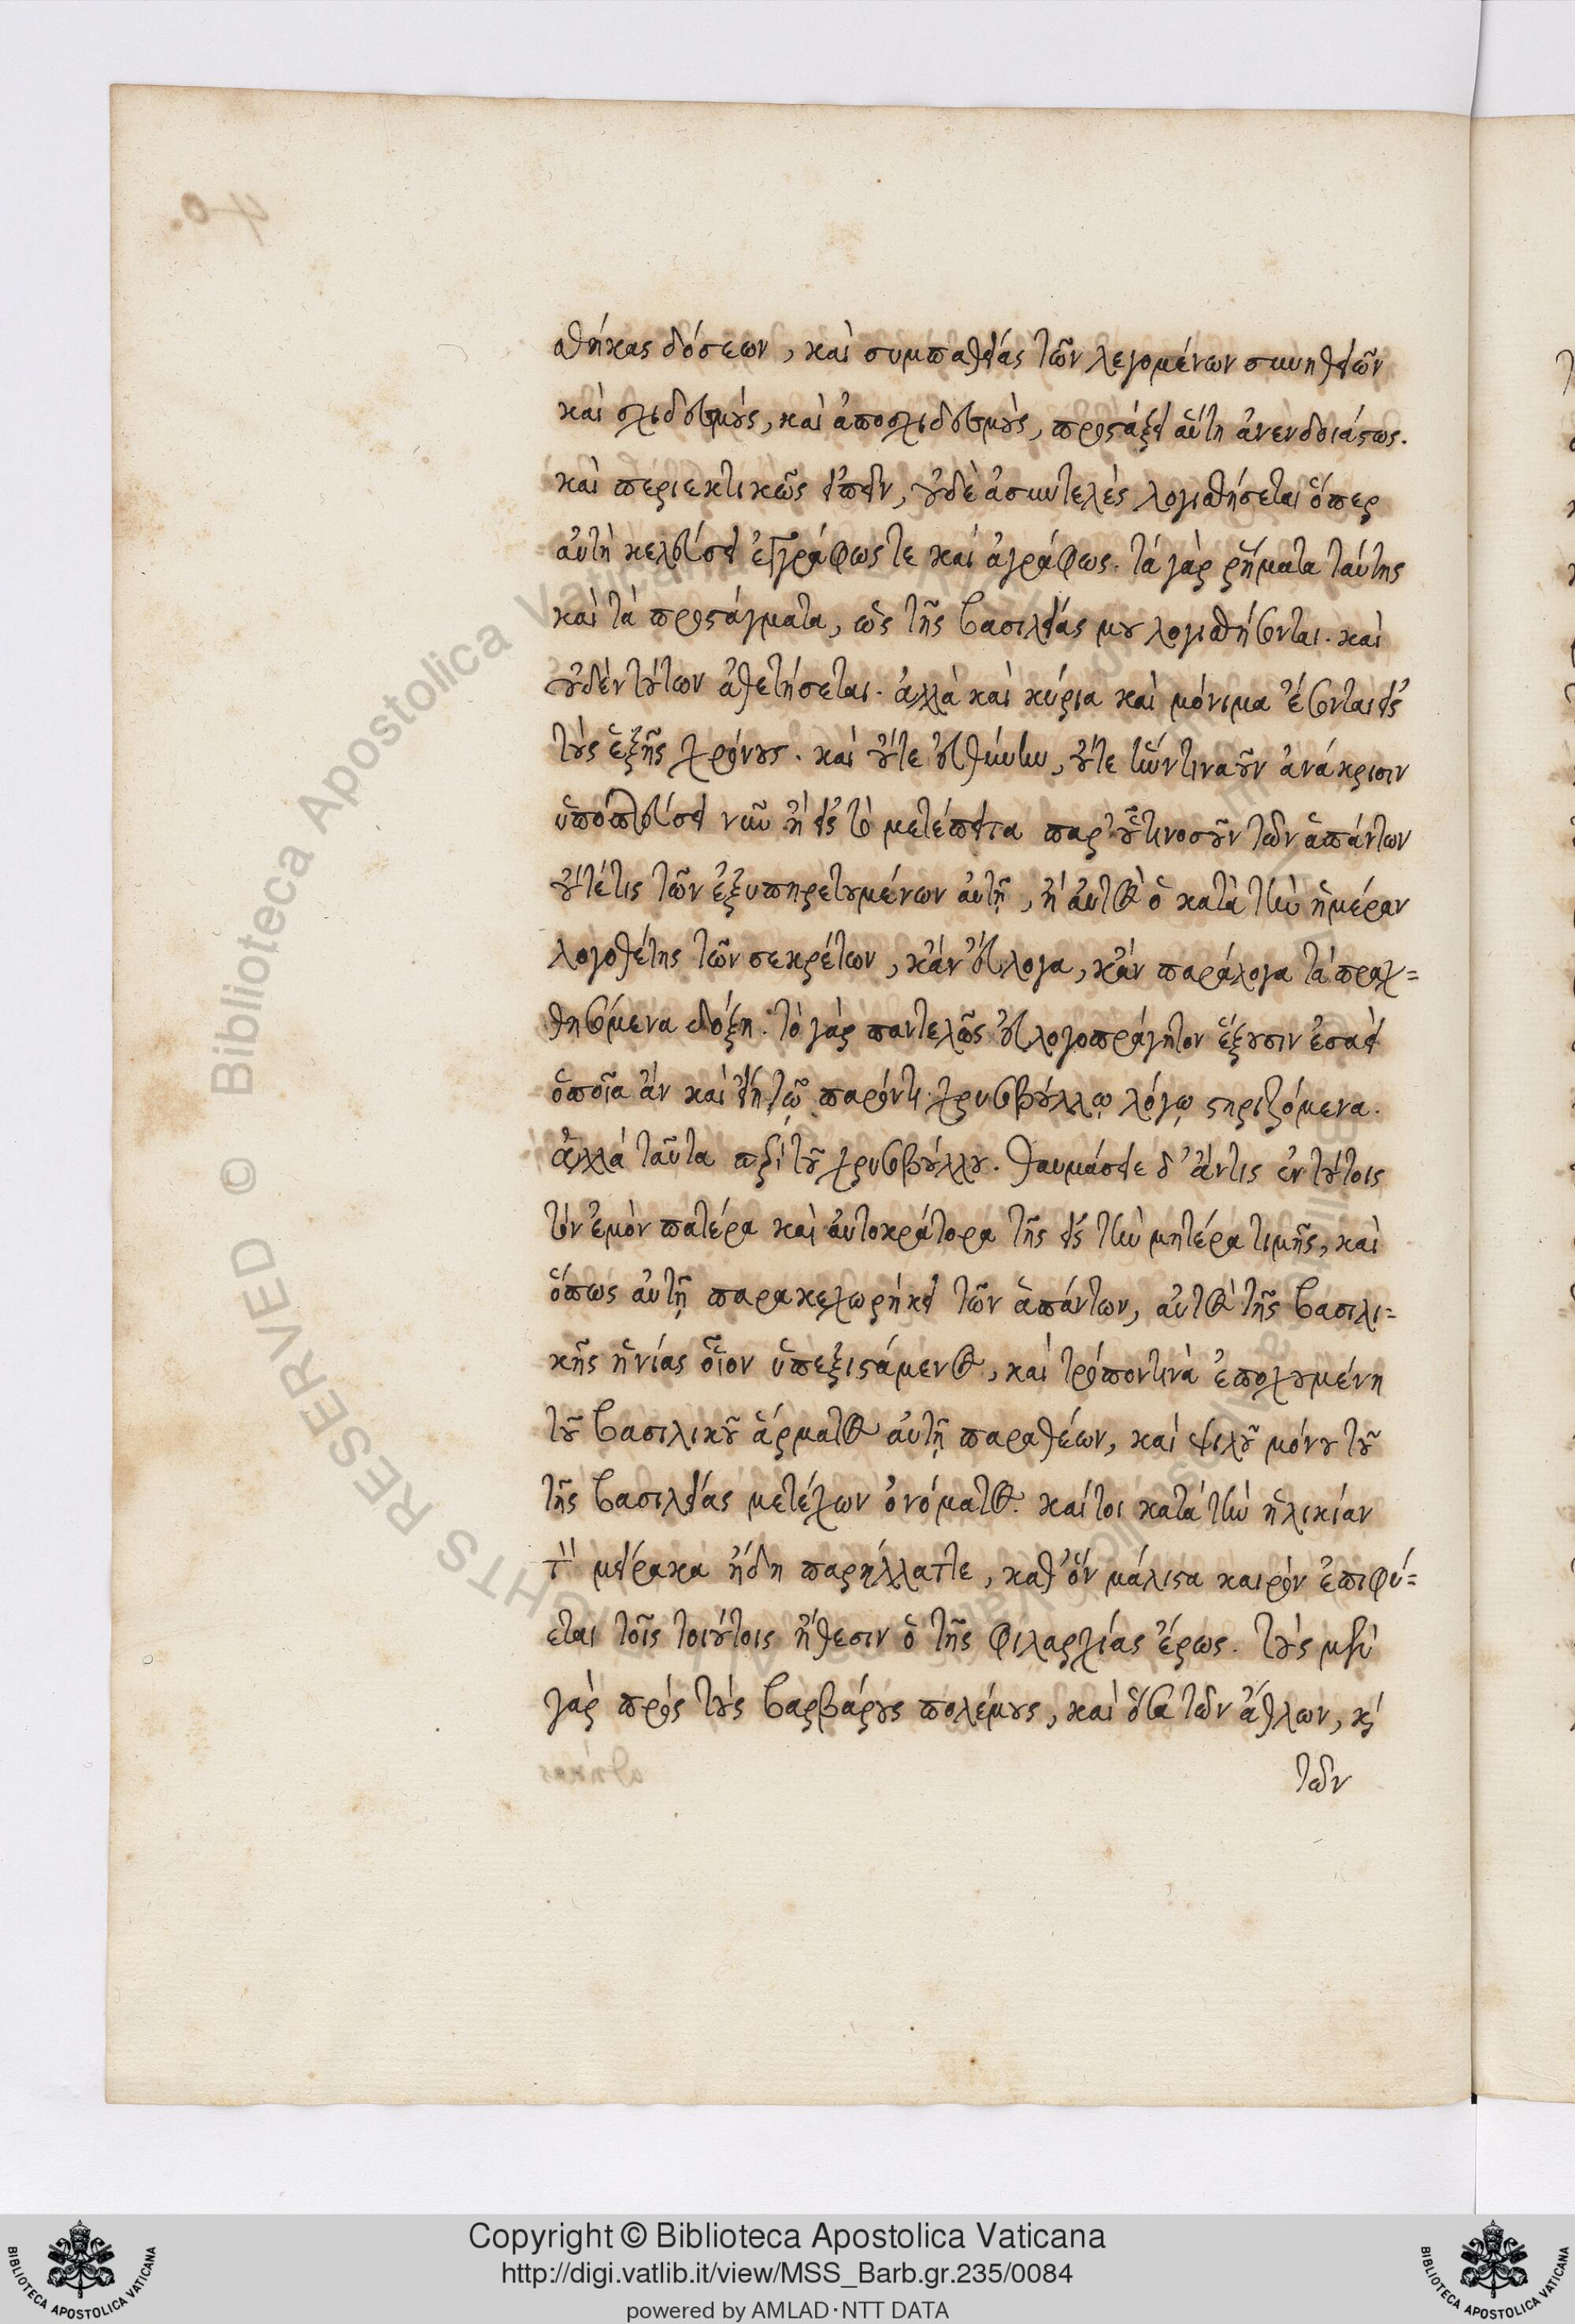 θήκας δόσεων, καὶ συμπαθείας τῶν λεγομένων συνηθειῶν
καὶ σχιδευμοὺς, καὶ ἀποσχιδευμοὺς, προστάξει αὕτη ἀνενδοιάστως.
καὶ περιεκτικῶς εἰπεῖν, οὐδὲ ἀσυντελὲς λογισθήσεται ὅπερ
αὐτὴ κελεύσει ἐγγράφως τε καὶ ἀγράφως. τὰ γὰρ ῥήματα ταύτης
καὶ τὰ προστάγματα, ὡς τῆς βασιλείας μου λογισθήσονται. καὶ
οὐδὲν τούτων ἀθετήσεται. ἀλλὰ καὶ κύρια καὶ μόνιμα ἔσονται εἰς
τοὺς ἑξῆς χρόνους. καὶ οὔτε εὐθύνην, οὔτε τὴν τιναοῦν ἀνάκρισιν
ὑποπτεύσει νῦν ἢ εἰς τὸ μετέπειτα παρ' οὗτινοσοῦν τῶν ἁπάντων
οὔτέ τις τῶν ἐξυπηρετουμένων αὐτῇ, ἢ αὐτὸς ὁ κατὰ τὴν ἡμέραν
λογοθέτης τῶν σεκρέτων, κἂν εὔλογα, κἂν παράλογα τὰ πραχ=
θησόμενα δόξῃ. τὸ γὰρ παντελῶς εὐλογοπράγητον ἕξουσιν ἐσαεὶ
ὁποῖα ἂν καὶ εἴη τῷ παρόντι χρυσοβούλλῳ λόγῳ στηριζόμενα.
ἀλλὰ ταῦτα περὶ τοῦ χρυσοβούλλου. θαυμάσειε δ' ἄν τις ἐν τούτοις
τὸν ἐμὸν πατέρα καὶ αὐτοκράτορα τῆς εἰς τὴν μητέρα τιμῆς, καὶ
ὅπως αὐτῇ παρακεχωρήκει τῶν ἁπάντων, αὐτὸς τῆς βασιλι=
κῆς ἡνίας οἷον ὑπεξιστάμενος, καὶ τρόπον τινὰ ἐποχουμένη
τοῦ βασιλικοῦ ἅρματος αὐτῇ παραθέων, καὶ ψιλοῦ μόνου τοῦ
τῆς βασιλείας μετέχων ὀνόματος. καίτοι κατὰ τὴν ἡλικίαν
τὰ μείρακα ἤδη παρήλλαττε, καθ' ὃν μάλιστα καιρὸν ἐπιφύ=
εται τοῖς τοιούτοις ἤθεσιν ὁ τῆς φιλαρχίας ἔρως. τοὺς μὲν
γὰρ πρὸς τοὺς βαρβάρους πολέμους, καὶ ὅσα τῶν ἄθλων, καὶ
τῶν